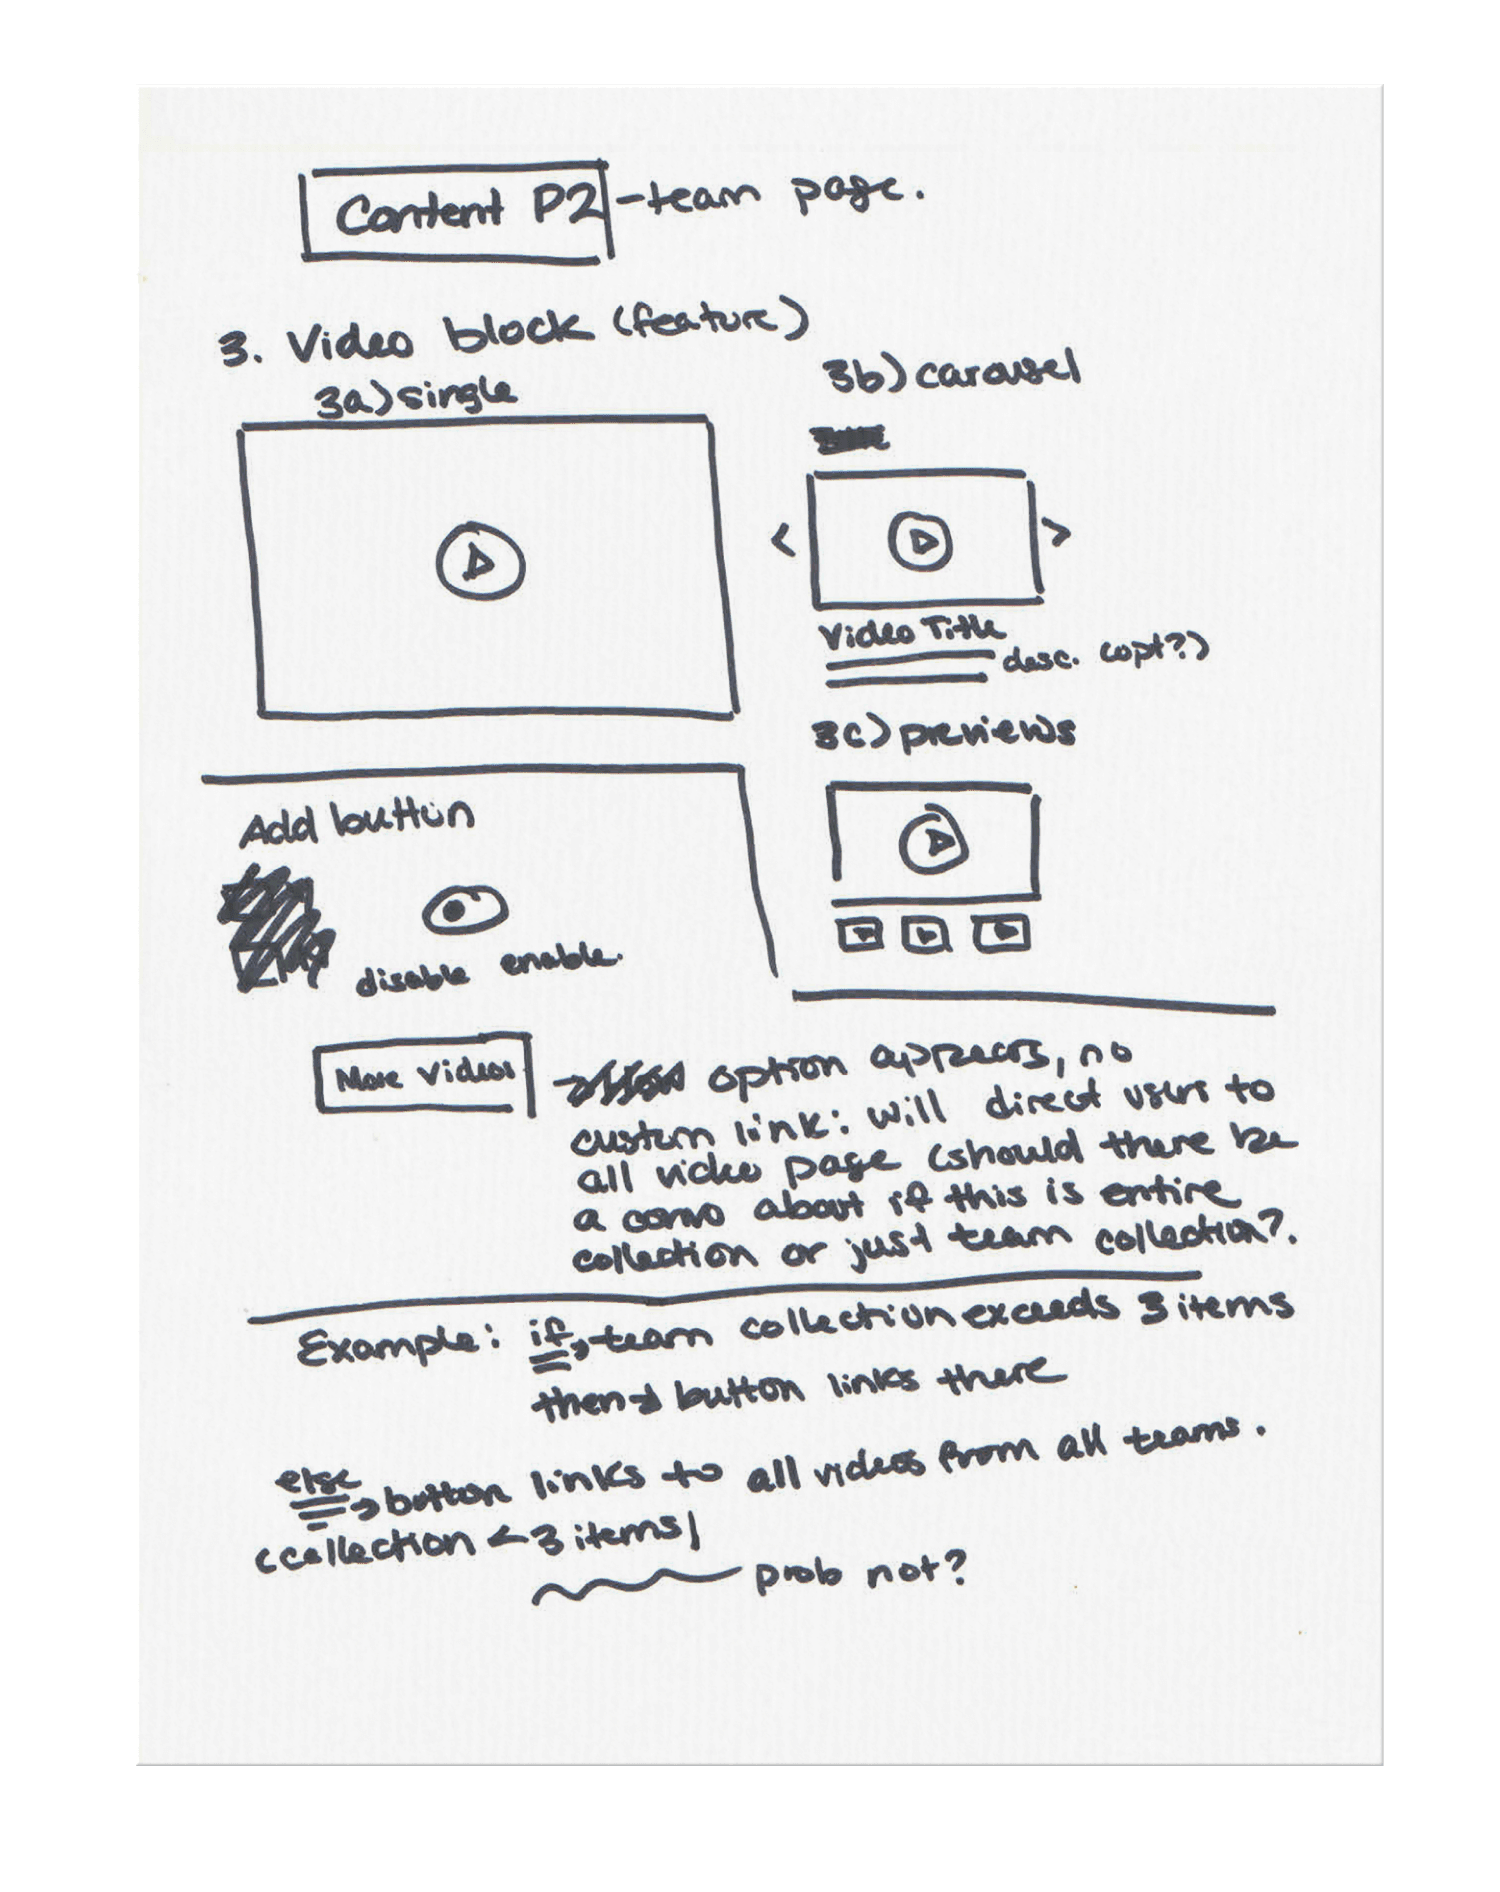 Content P2 - team page.
3. Video block (feature)
3a) single
3b) carousel
< >
Video Title
desc. (opt?)
3c) previews
Add button
disable enable.
More videos
→ option appears, no
custom link: will direct users to
all video page (should there be
a convo about if this is entire
collection or just team collection?.
Example: if → team collection exceeds 3 items
then → button links there
else → button links to all videos from all teams.
(collection < 3 items)
prob not?